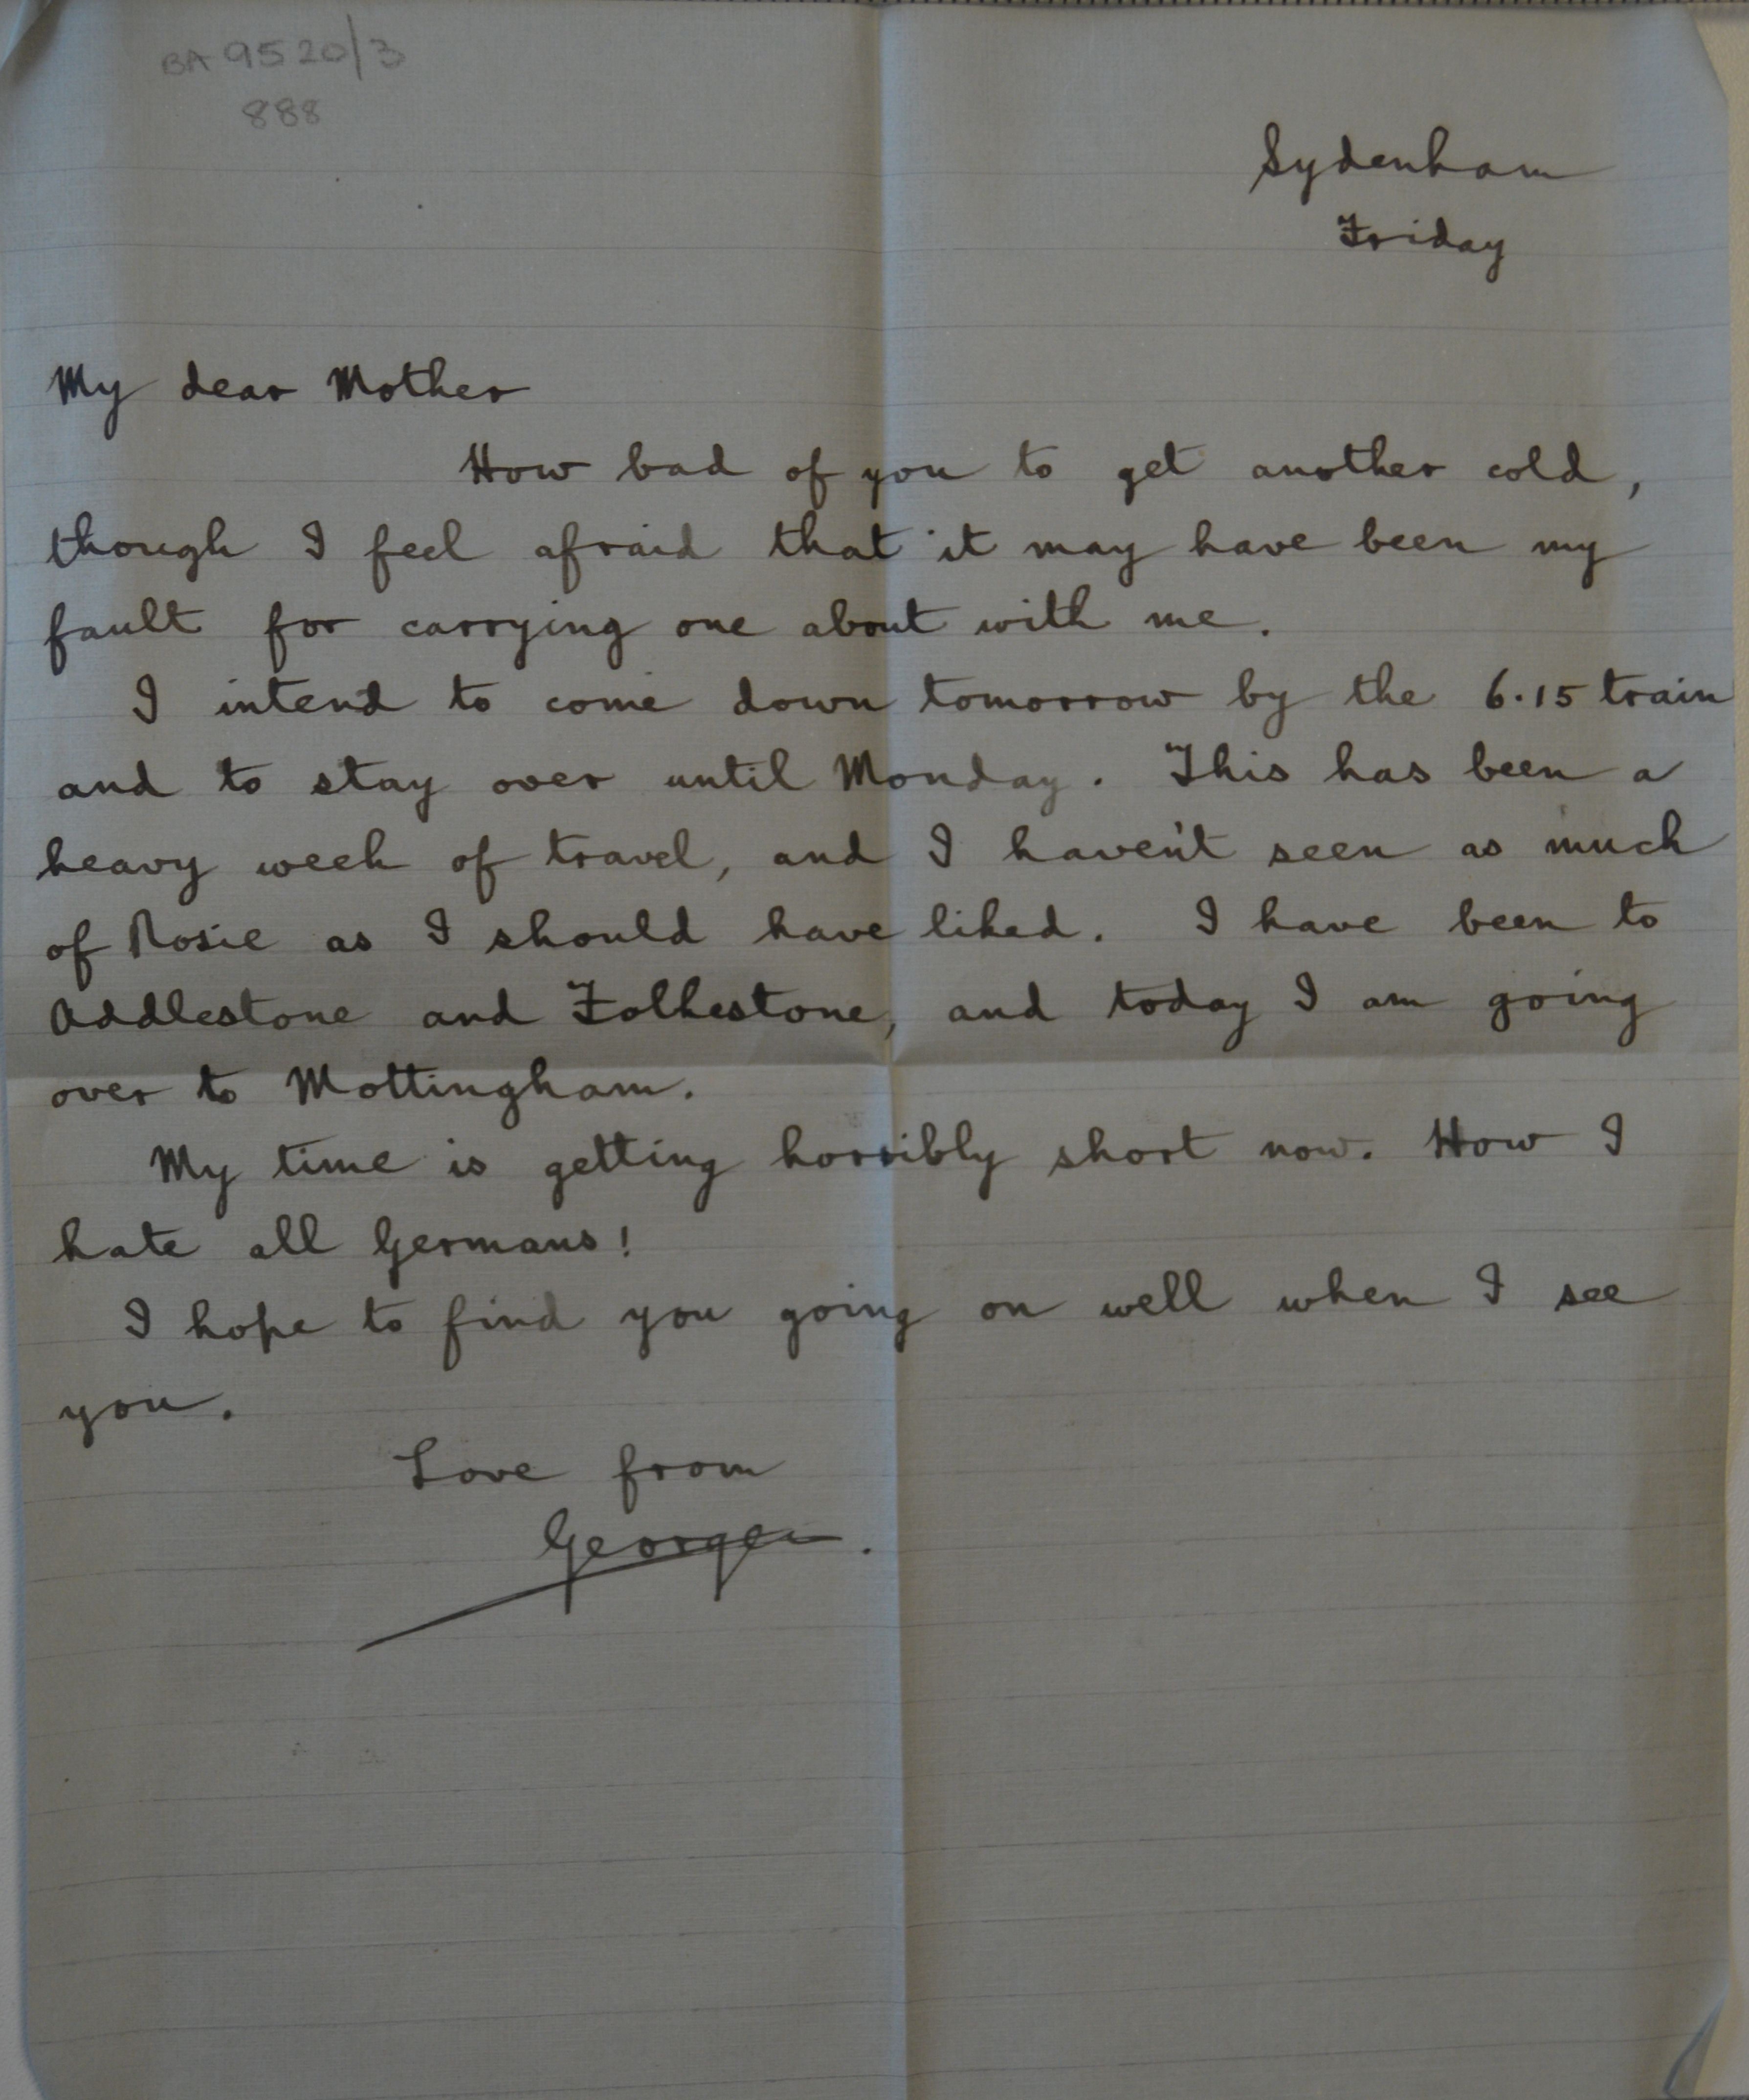 BA 9520/3
888
Sydenham
Friday
My dear Mother
How bad of you to get another cold,
though I feel afraid that it may have been my
fault for carrying one about with me.
I intend to come down tomorrow by the 6.15 train
and to stay over until Monday. This has been a
heavy week of travel, and I haven't seen as much
of Rosie as I should have liked. I have been to
Addlestone and Folkestone, and today I am going
over to Mottingham.
My time is getting horribly short now. How I
hate all Germans!
I hope to find you going on well when I see
you.
Love from
George.